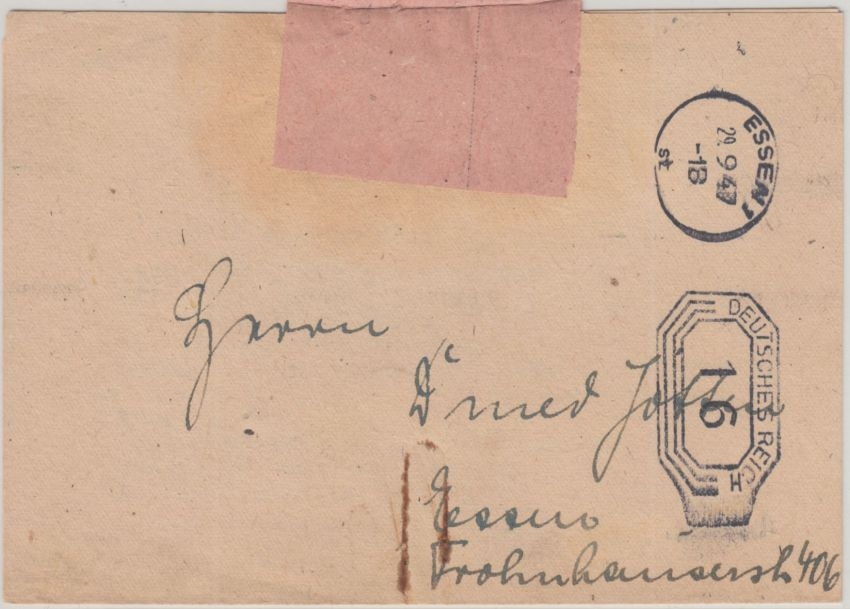 ESSEN 1
29.9.47
-18
st
DEUTSCHES REICH
16
Herrn
Dr med Jötten
Essen
Frohnhauserstr. 406